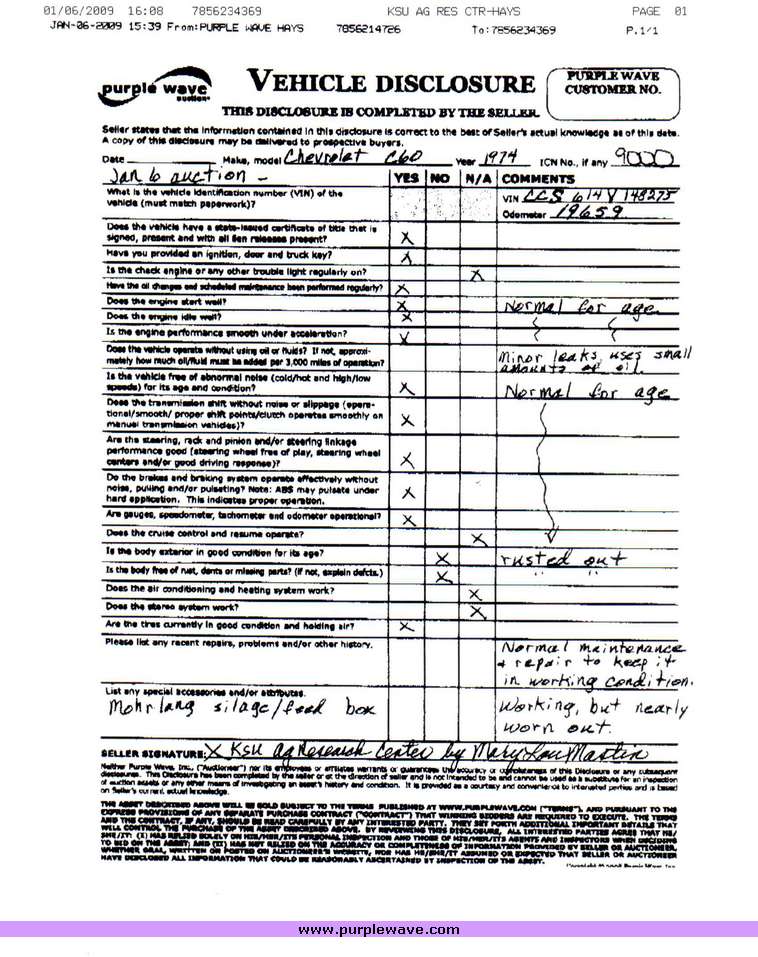 01/06/2009 16:08 7856234369 KSU AG RES CTR-HAYS PAGE 01
JAN-06-2009 15:39 From:PURPLE WAVE HAYS 7856214726 To:7856234369 P.1/1
purple wave
auction
VEHICLE DISCLOSURE
PURPLE WAVE
CUSTOMER NO.
THIS DISCLOSURE IS COMPLETED BY THE SELLER.
Seller states that the information contained in this disclosure is correct to the best of Seller's actual knowledge as of this date.
A copy of this disclosure may be delivered to prospective buyers.
Date Make, model Chevrolet C60 Year 1974 ICN No., if any 9000
Jan 6 auction - YES NO N/A COMMENTS
What is the vehicle identification number (VIN) of the
vehicle (must match paperwork)?
VIN CCS 614V148275
Odometer 19659
Does the vehicle have a state-issued certificate of title that is
signed, present and with all lien releases present? X
Have you provided an ignition, door and truck key? X
Is the check engine or any other trouble light regularly on? X
Have the oil changes and scheduled maintenance been performed regularly? X
Does the engine start well? X Normal for age
Does the engine idle well? X
Is the engine performance smooth under acceleration? X
Does the vehicle operate without using oil or fluids? If not, approxi-
mately how much oil/fluid must be added per 3,000 miles of operation?
Minor leaks, uses small
amounts of oil.
Is the vehicle free of abnormal noise (cold/hot and high/low
speeds) for its age and condition? X Normal for age
Does the transmission shift without noise or slippage (opera-
tional/smooth/ proper shift points/clutch operates smoothly on
manual transmission vehicles)? X
Are the steering, rack and pinion and/or steering linkage
performance good (steering wheel free of play, steering wheel
centers and/or good driving response)? X
Do the brakes and braking system operate effectively without
noise, pulling and/or pulsating? Note: ABS may pulsate under
hard application. This indicates proper operation. X
Are gauges, speedometer, tachometer and odometer operational? X
Does the cruise control and resume operate? X
Is the body exterior in good condition for its age? X rusted out
Is the body free of rust, dents or missing parts? (If not, explain defcts.) X " "
Does the air conditioning and heating system work? X
Does the stereo system work? X
Are the tires currently in good condition and holding air? X
Please list any recent repairs, problems and/or other history.
Normal maintenance
+ repair to keep it
in working condition.
List any special accessories and/or attributes.
Mohrlang silage/feed box
Working, but nearly
worn out.
SELLER SIGNATURE: X KSU Ag Research Center by Mary Lou Martin
Neither Purple Wave, Inc., ("Auctioneer") nor its employees or affiliates warrants or guarantees the accuracy or completeness of this Disclosure or any subsequent
disclosures. This Disclosure has been completed by the seller or at the direction of seller and is not intended to be and cannot be used as a substitute for an inspection
of auction assets or any other means of investigating an asset's history and condition. It is provided as a courtesy and convenience to interested parties and is based
on Seller's current actual knowledge.
THE ASSET DESCRIBED ABOVE WILL BE SOLD SUBJECT TO THE TERMS PUBLISHED AT WWW.PURPLEWAVE.COM ("TERMS"), AND PURSUANT TO THE
EXPRESS PROVISIONS OF ANY SEPARATE PURCHASE CONTRACT ("CONTRACT") THAT WINNING BIDDERS ARE REQUIRED TO EXECUTE. THE TERMS
AND THE CONTRACT, IF ANY, SHOULD BE READ CAREFULLY BY ANY INTERESTED PARTY. THEY SET FORTH ADDITIONAL IMPORTANT DETAILS THAT
WILL CONTROL THE PURCHASE OF THE ASSET DESCRIBED ABOVE. BY REVIEWING THIS DISCLOSURE, ALL INTERESTED PARTIES AGREE THAT HE/
SHE/IT: (I) HAS RELIED SOLELY ON HIS/HER/ITS PERSONAL INSPECTION AND THOSE OF HIS/HER/ITS AGENTS AND INSPECTORS WHEN DECIDING
TO BID ON THE ASSET; AND (II) HAS NOT RELIED ON THE ACCURACY OR COMPLETENESS OF INFORMATION PROVIDED BY SELLER OR AUCTIONEER,
WHETHER ORAL, WRITTEN OR POSTED ON AUCTIONEER'S WEBSITE, NOR HAS HE/SHE/IT ASSUMED OR EXPECTED THAT SELLER OR AUCTIONEER
HAVE DISCLOSED ALL INFORMATION THAT COULD BE REASONABLY ASCERTAINED BY INSPECTION OF THE ASSET.
www.purplewave.com